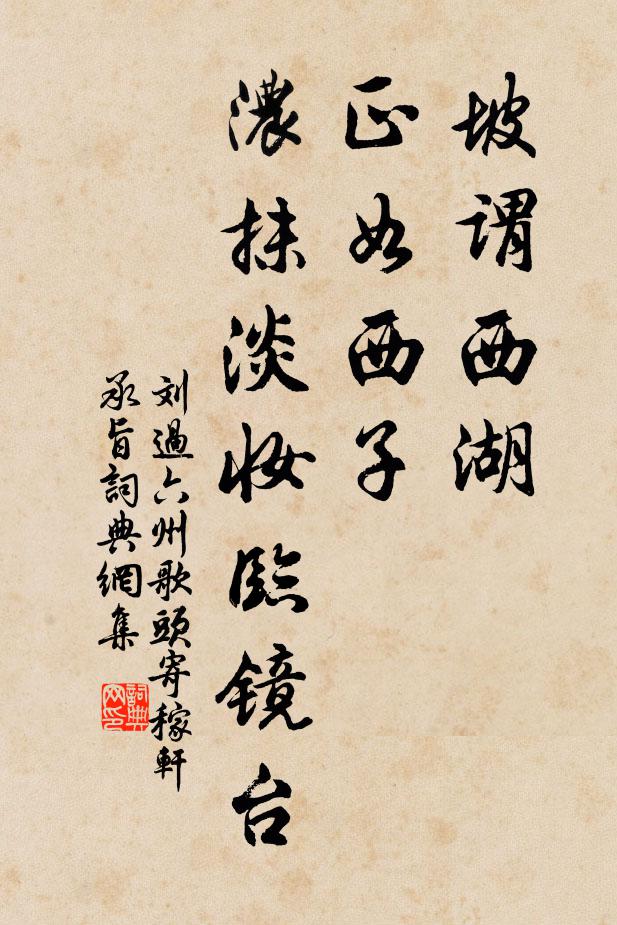 坡謂西湖
正如西子
濃抹淡妆臨镜台
刘過六州歌頭寄稼軒
承旨詞典網集
詞典网印